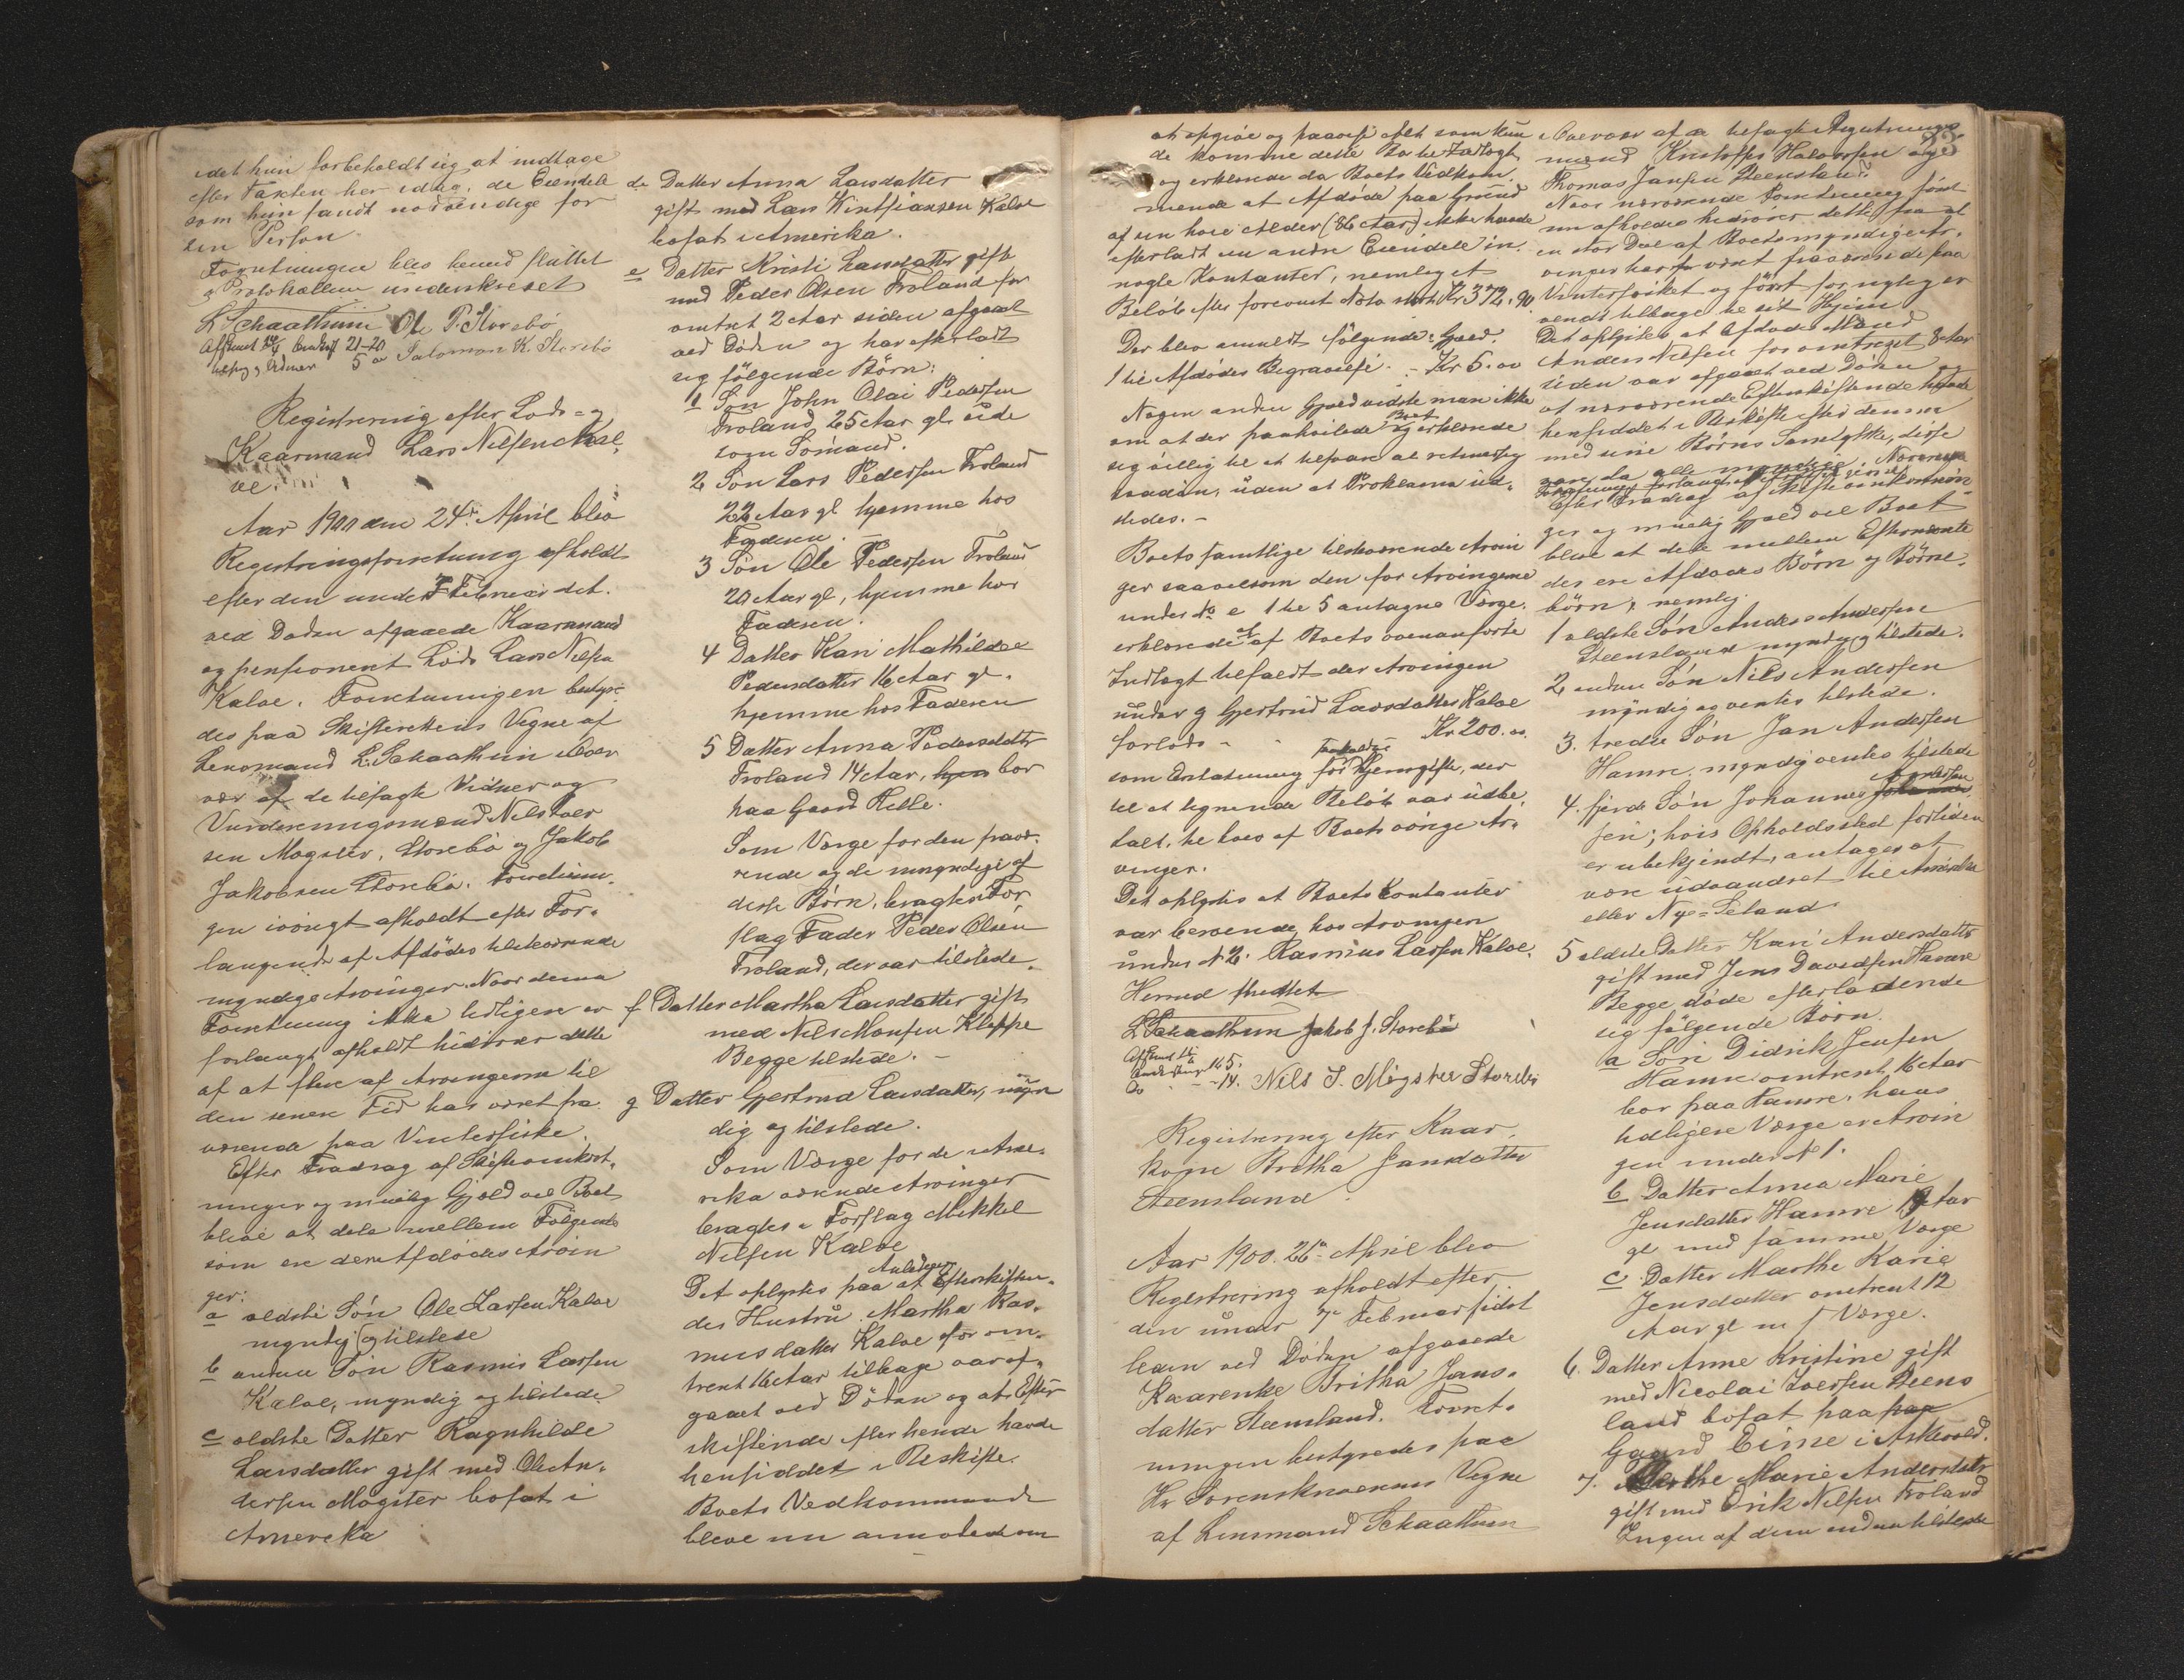 idet hun forbeholdt sig at indtage
efter Taxten her idag, de Eiendele
som hun fandt nødvendige for
sin Person.
Forretningen blev hermed sluttet
og Protokollen underskrevet
L Schaathun Ole P. Storebö
Salomon K. Storebö
Registrering efter Lods- og
Kaarmand Lars Nilsen Kal-
ve.
Aar 1900 den 24de April blev
Registreringsforretning afholdt
efter den under Februar det.
ved Døden afgaaede Kaarmand
og pensioneret Lods Lars Nilsen
Kalve. Forretningen bestyre-
des paa Skifterettens Vegne af
Lensmand L. Schaathun i Over
vær af de tilsagte Vidner og
Vurderingsmænd Nils Iver
sen Møgster, Storebø og Jakob
Jakobsen Storebø. Forretnin-
gen iøvrigt afholdt efter For-
langende af Afdødes tilstedeværende
myndige Arvinger. Naar denne
Forretning ikke tidligere er
forlangt afholdt hidrører dette
af at flere af Arvingerne til
den senere Tid har været fra
værende paa Vinterfiske.
Efter Fradrag af Skifteomkost-
ninger og mulig Gjæld vil Boet
blive at dele mellem Følgende
som ere den Afdødes Arvin
ger:
a ældste Søn Ole Larsen Kalve
myndig og tilstede
b anden Søn Rasmus Larsen
Kalve, myndig og tilstede
c ældste Datter Ragnhilde
Larsdatter gift med Ole An-
dersen Møgster bosat i
Amerika
d Datter Anna Larsdatter
gift med Lars Kalve
bosat i Amerika.
e Datter Kristi Larsdatter gift
med Peder Olsen Froland for
omtrent 2 Aar siden afgaaet
ved Døden og har efterladt
sig følgende Børn:
1 Søn John Olai Pedersen
Froland 25 Aar gl. ude
som Sömand.
2 Søn Lars Pedersen Froland
22 Aar gl hjemme hos
Faderen.
3 Søn Ole Pedersen Froland
20 Aar gl, hjemme hos
Faderen.
4 Datter Kari Mathilde
Pedersdatter 16 Aar gl.
hjemme hos Faderen
5 Datter Anna Pedersdatter
Froland 14 Aar, hjem bor
paa Gaard
Som Værge for den fravæ-
rende og de umyndige af
disse Børn, bragtes i For
slag Fader Peder Olsen
Froland, der var tilstede.
f Datter Martha Larsdatter gift
med Nils Monsen Kleppe
Begge tilstede.
g Datter Gjertrud Larsdatter, myn
dig og tilstede.
Som Værge for de i Ame-
rika værende Arvinger
bragtes i Forslag Mikkel
Nilsen Kalve
Anledning
Det oplystes paa at Efterskiften-
des Hustru Martha Ras-
musdatter Kalve for om-
trent 16 Aar tilbage var af-
gaaet ved Døden og at Efter
skiftende efter hende havde
hensiddet i Uskifte.
Boets Vedkommende
bleve nu anmodede om
at opgive og paavise alt som kun
de komme dette Bo til Indtægt
og erklærede da Boets Vedkom-
mende at Afdøde paa Grund
af sin høie Alder (86 Aar) ikke havde
efterladt sig andre Eiendele en
nogle Kontanter, nemlig et
Beløb efter forevist Nota stort Kr 372,90
Der blev anmeldt følgende Gjæld:
1 til Afdødes Begravelse - Kr 5.00
Nogen anden Gjæld vidste man ikke
Boet
om at der paahvilede og erklærede
sig villig til at tilsvare al retmæssig
saadan, uden at Proklama ud-
stedes. -
Boets samtlige tilstedeværende Arvin
ger saavelsom den for Arvingerne
under No e 1 til 5 antagne Værge.
erklærede at af Boets ovenanførte
Indtægt tilfaldt der Arvingen
under g Gjertrud Larsdatter Kalve
forlods - Kr 200.00
som Erstatning for Hjemgifte, der
til et lignende Beløb var udbe-
talt til hver af Boets øvrige Ar-
vinger.
Det oplystes at Boets Kontanter
var beroende hos Arvingen
under N 2. Rasmus Larsen Kalve.
Hermed sluttet
L Schaathun Jakob J. Storebø
Nils I. Møgster Storebø
Registrering efter Kaar-
kone Britha Jansdatter
Steensland.
Aar 1900. 26de April blev
Registrering afholdt efter
den under 7de Februar sidst
leden ved Døden afgaaede
Kaarenke Britha Jans-
datter Steensland. Forret-
ningen bestyredes paa
Hr Sorenskriverens Vegne
af Lensmand Schaathun
i Overvær af de tilsagte Registrerings
mænd Kristoffer Halvorsen og
Thomas Jansen Steensland.
Naar nærværende Forretning først
nu afholdes hidrører dette fra at
en stor Del af Boets myndige Ar-
vinger har været fraværende paa
Vinterfisket og først for nylig er
vendt tilbage til sit Hjem
Det oplystes at Afdødes Mand
Anders Nilsen for omtrent 8 Aar
siden var afgaaet ved Døden og
at nærværende Efterskiftende havde
hensiddet i Uskifte efter denne
med sine Børns Samtykke, disse
vare da alle myndige. Nærværende
Forretning forlanges
Efter Fradrag af Skifteomkostnin-
ger og mulig Gjæld vil Boet
blive at dele mellem Efternævnte
der ere Afdødes Børn og Børne-
børn, nemlig:
1 ældste Søn Anders Andersen
Steensland myndig og tilstede.
2 anden Søn Nils Andersen
myndig og ventes tilstede.
3. tredie Søn Jan Andersen
Hamre. myndig ventes tilstede
4. fjerde Søn Johannes Andersen
sen; hvis Opholdssted fortiden
er ubekjendt, antages at
være udvandret til Amerika
eller Nye-Seland
5 ældste Datter Kari Andersdatter
gift med Jens Davidsen Hamre
Begge døde efterladende
sig følgende Børn.
a Søn Didrik Jensen
Hamre omtrent 16 Aar
bor paa Hamre, hans
tidligere Værge er Arvin
gen under N 1.
b Datter Anna Marie
Jensdatter Hamre Aar
gl med samme Værge
c Datter Marthe Karie
Jensdatter omtrent 12
Aar gl m s Værge.
6. Datter Anne Kristine gift
med Nicolai Iversen Steens
land bosat paa paa
Gaard Eime i Askvold.
7. Marthe Marie Andersdatter
gift med Erik Nilsen Froland
Ingen af dem endnu tilstede